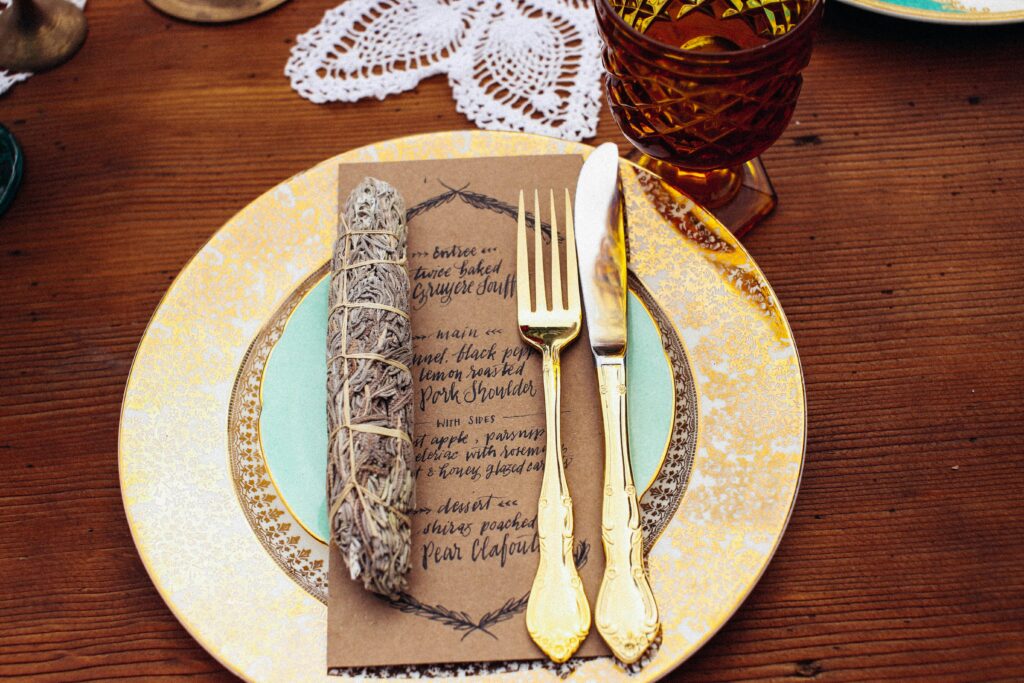 entree
twice baked
Gruyere Souff
main
nnel, black pepp
lemon roasted
Pork Shoulder
WITH SIDES
st apple, parsnip
eleriac with rosem
t & honey glazed car
dessert
shiraz poached
Pear Clafout